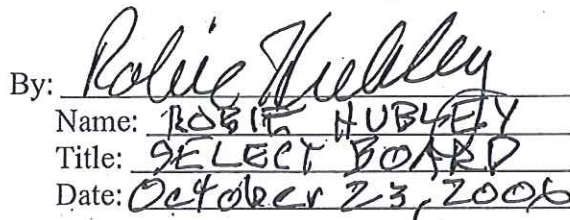 By: Robie Hubley
Name: ROBIE HUBLEY
Title: SELECT BOARD
Date: October 23, 2006